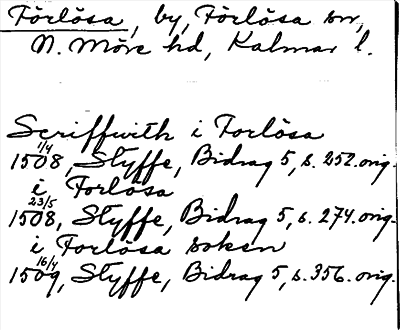 Förlösa, by, Förlösa sn,
N. Möre hd, Kalmar l.
Scriffwith i Forlösa
1508 1/4, Styffe, Bidrag 5, s. 252. orig.
i Forlösa
1508 23/5, Styffe, Bidrag 5, s. 274. orig.
i Forlösa soken
1509 16/4, Styffe, Bidrag 5, s. 356. orig.